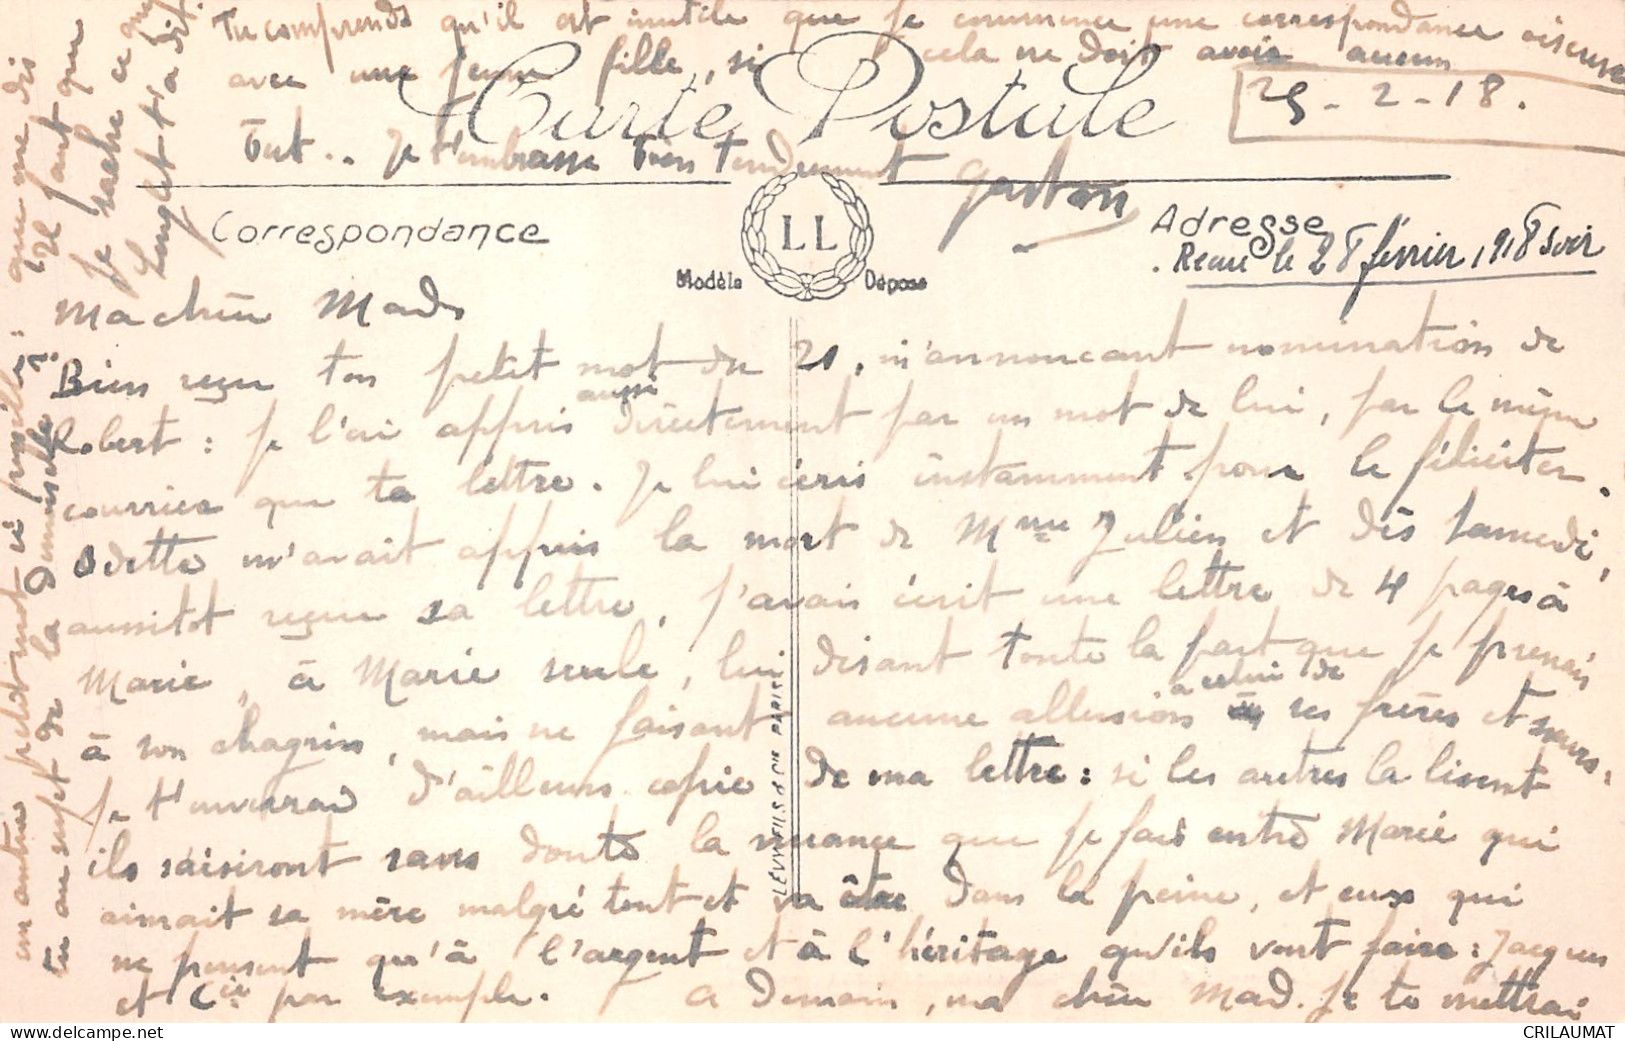 25-2-18.
Carte Postale
Correspondance
LL
Modèle Déposé
Adresse
Recue le 28 février 1918 soir
Ma chère Mad
Bien reçu ton petit mot du 21, m'annoncant nomination de
Robert : je l'ai appris aussi directement par un mot de lui, par le même
courrier que ta lettre. Je lui écris instamment pour le féliciter.
Odette m'avait appris la mort de Mme Julien et dès samedi,
aussitot reçue sa lettre, j'avais écrit une lettre de 4 pages à
Marie, à Marie seule, lui disant toute la part que je prenais
à son chagrin, mais ne faisant aucune allusion à celui de ses frères et soeurs :
je t'enverrai d'ailleurs copie de ma lettre : si les autres la lisent
ils saisiront sans doute la nuance que je fais entre Marie qui
aimait sa mère malgré tout et va être dans la peine, et eux qui
ne pensent qu'à l'argent et à l'héritage qu'ils vont faire : Jacques
et Cie par exemple. A demain, ma chère Mad. Je te mettrai
un autre petit mot où précise : que me dis
tu au sujet de la Demoiselle ?
Il faut que
je sache ce
t'a dit.
Tu comprends qu'il est inutile que je commence une correspondance oiseuse
avec une jeune fille, si cela ne doit avoir aucun
but.. Je t'embrasse bien tendrement
Gaston
LÉVY FILS & CIE PARIS
CRILAUMAT